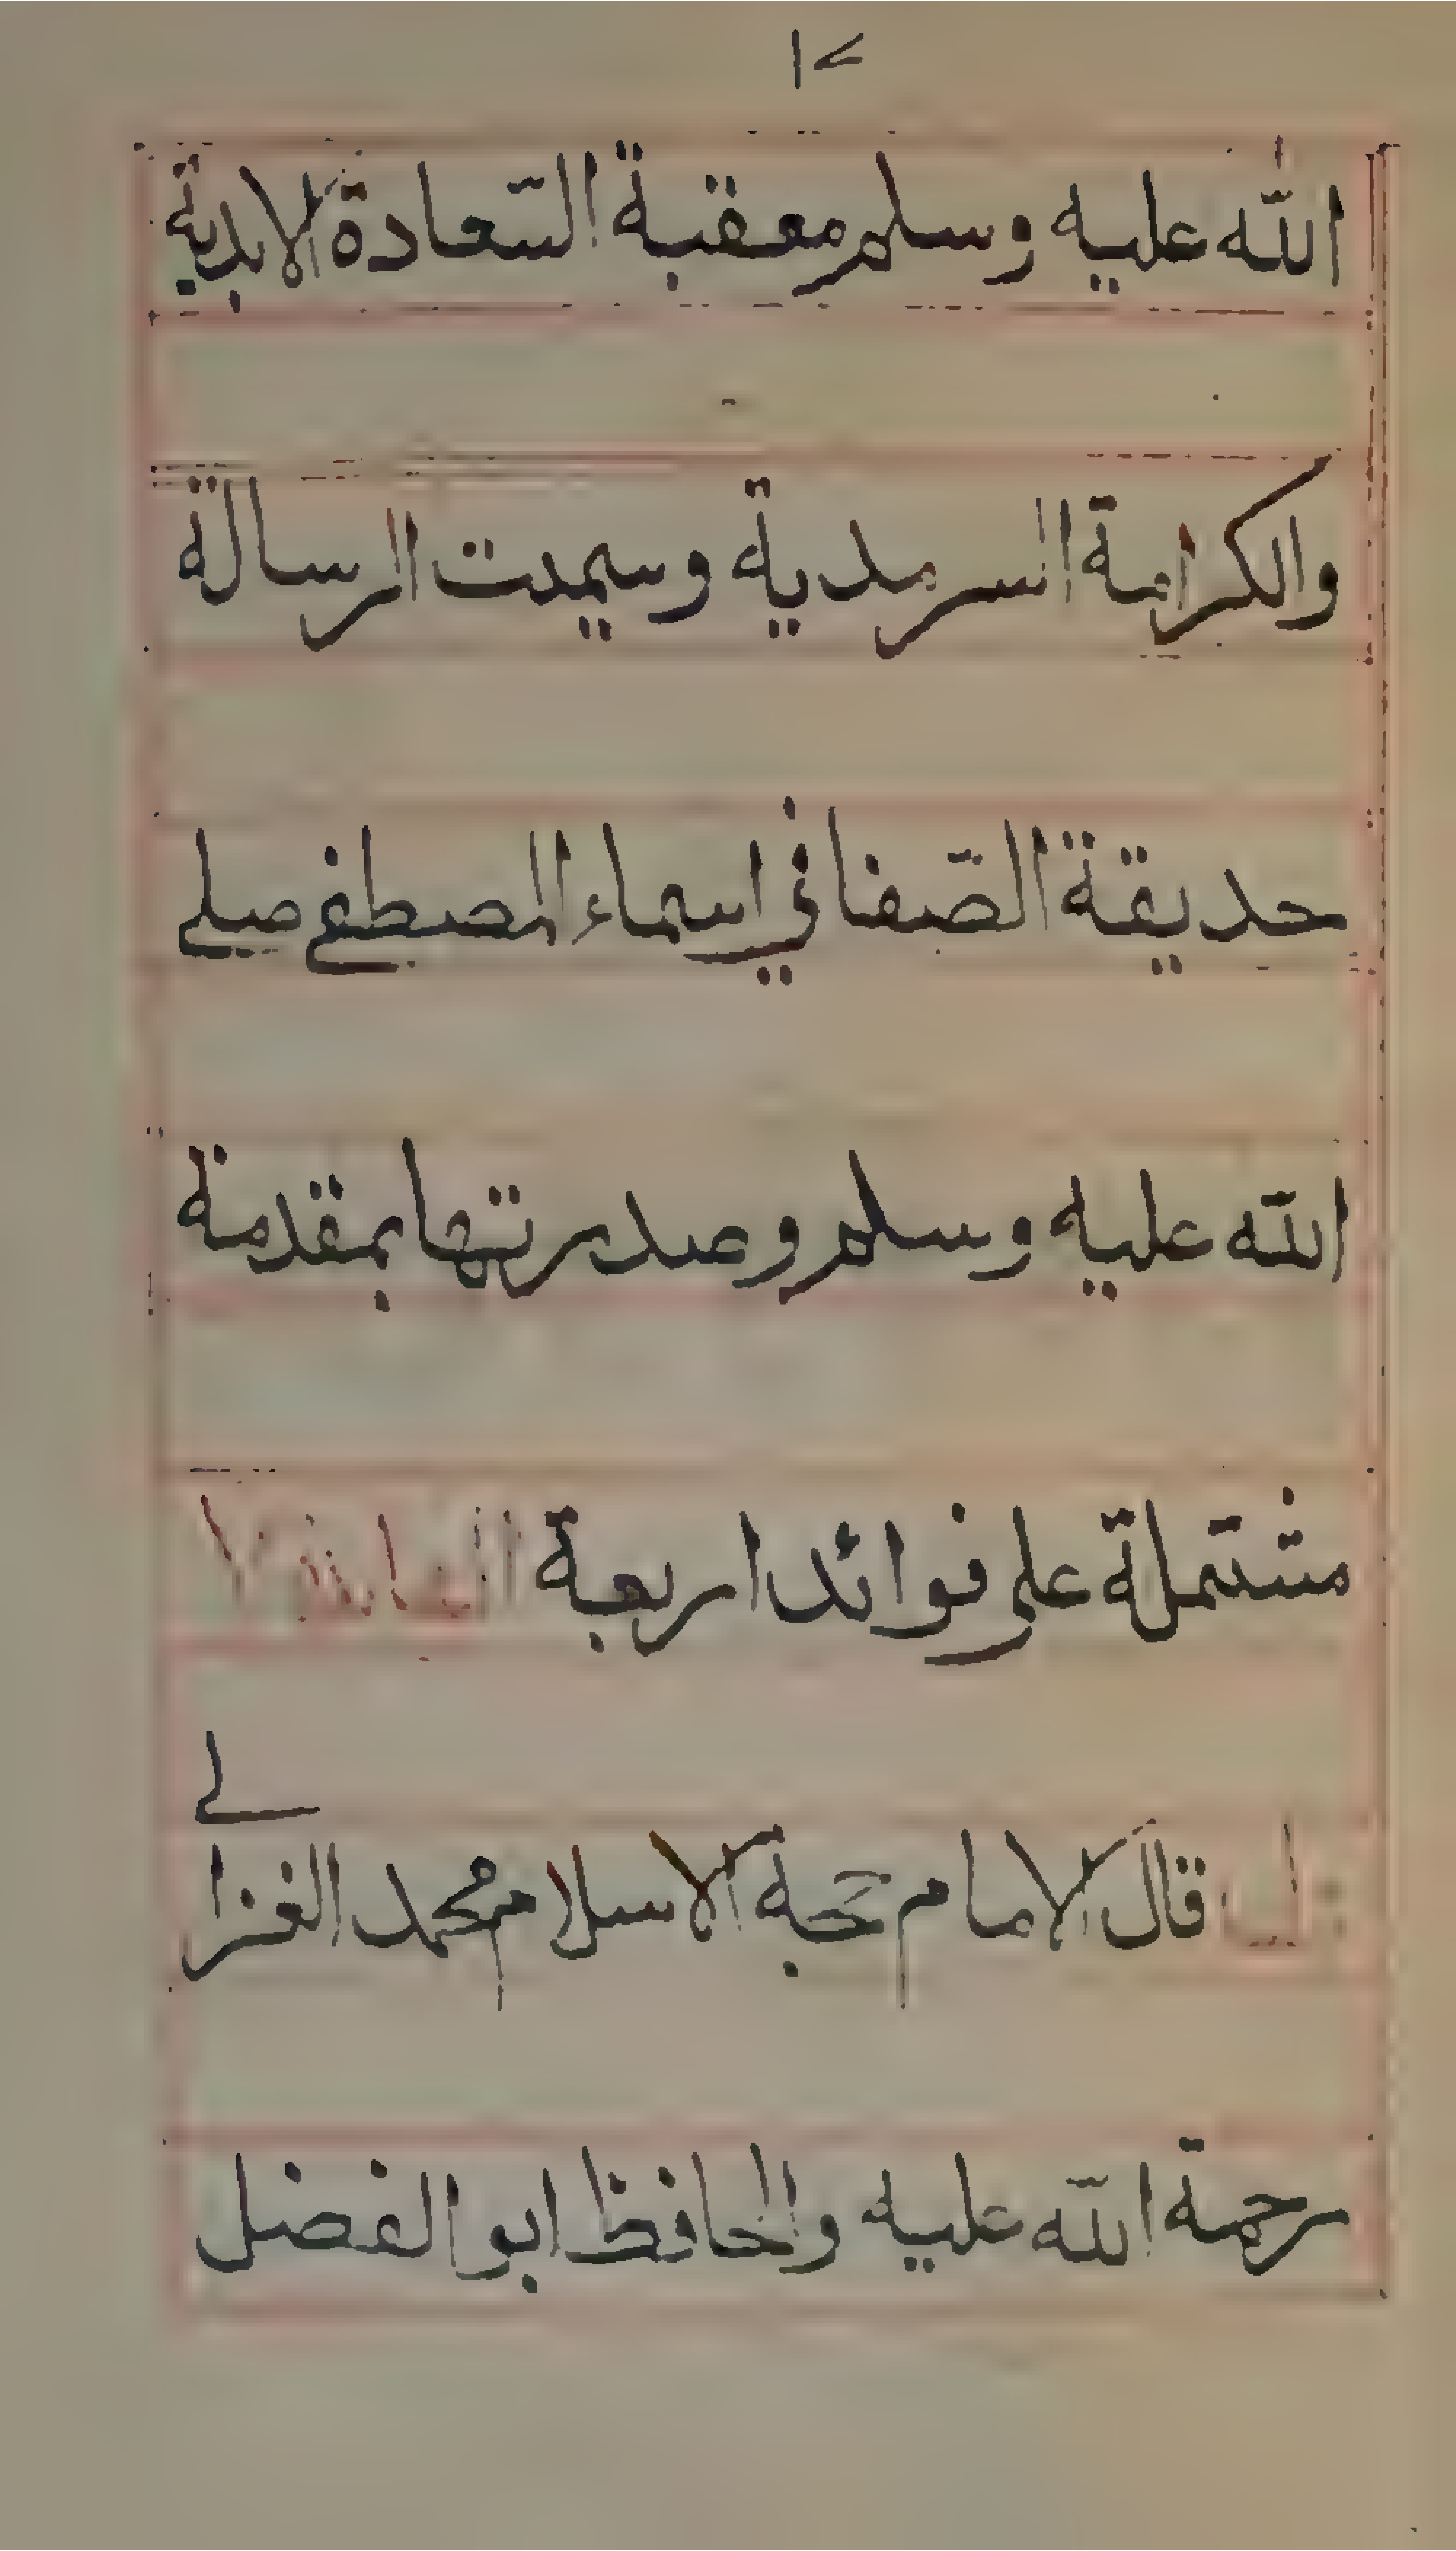 الله عليه وسلم معقبة السّعادة الابدية
والكرامة السرمدية وسميت الرسالة
حديقة الصّفا في اسماء المصطفى صلى
الله عليه وسلم وصدرتها بمقدمة
مشتملة على فوائد اربعة الفائدة الا
ولى قال الامام حجة الاسلام محمد الغزالي
رحمة الله عليه والحافظ ابو الفضل